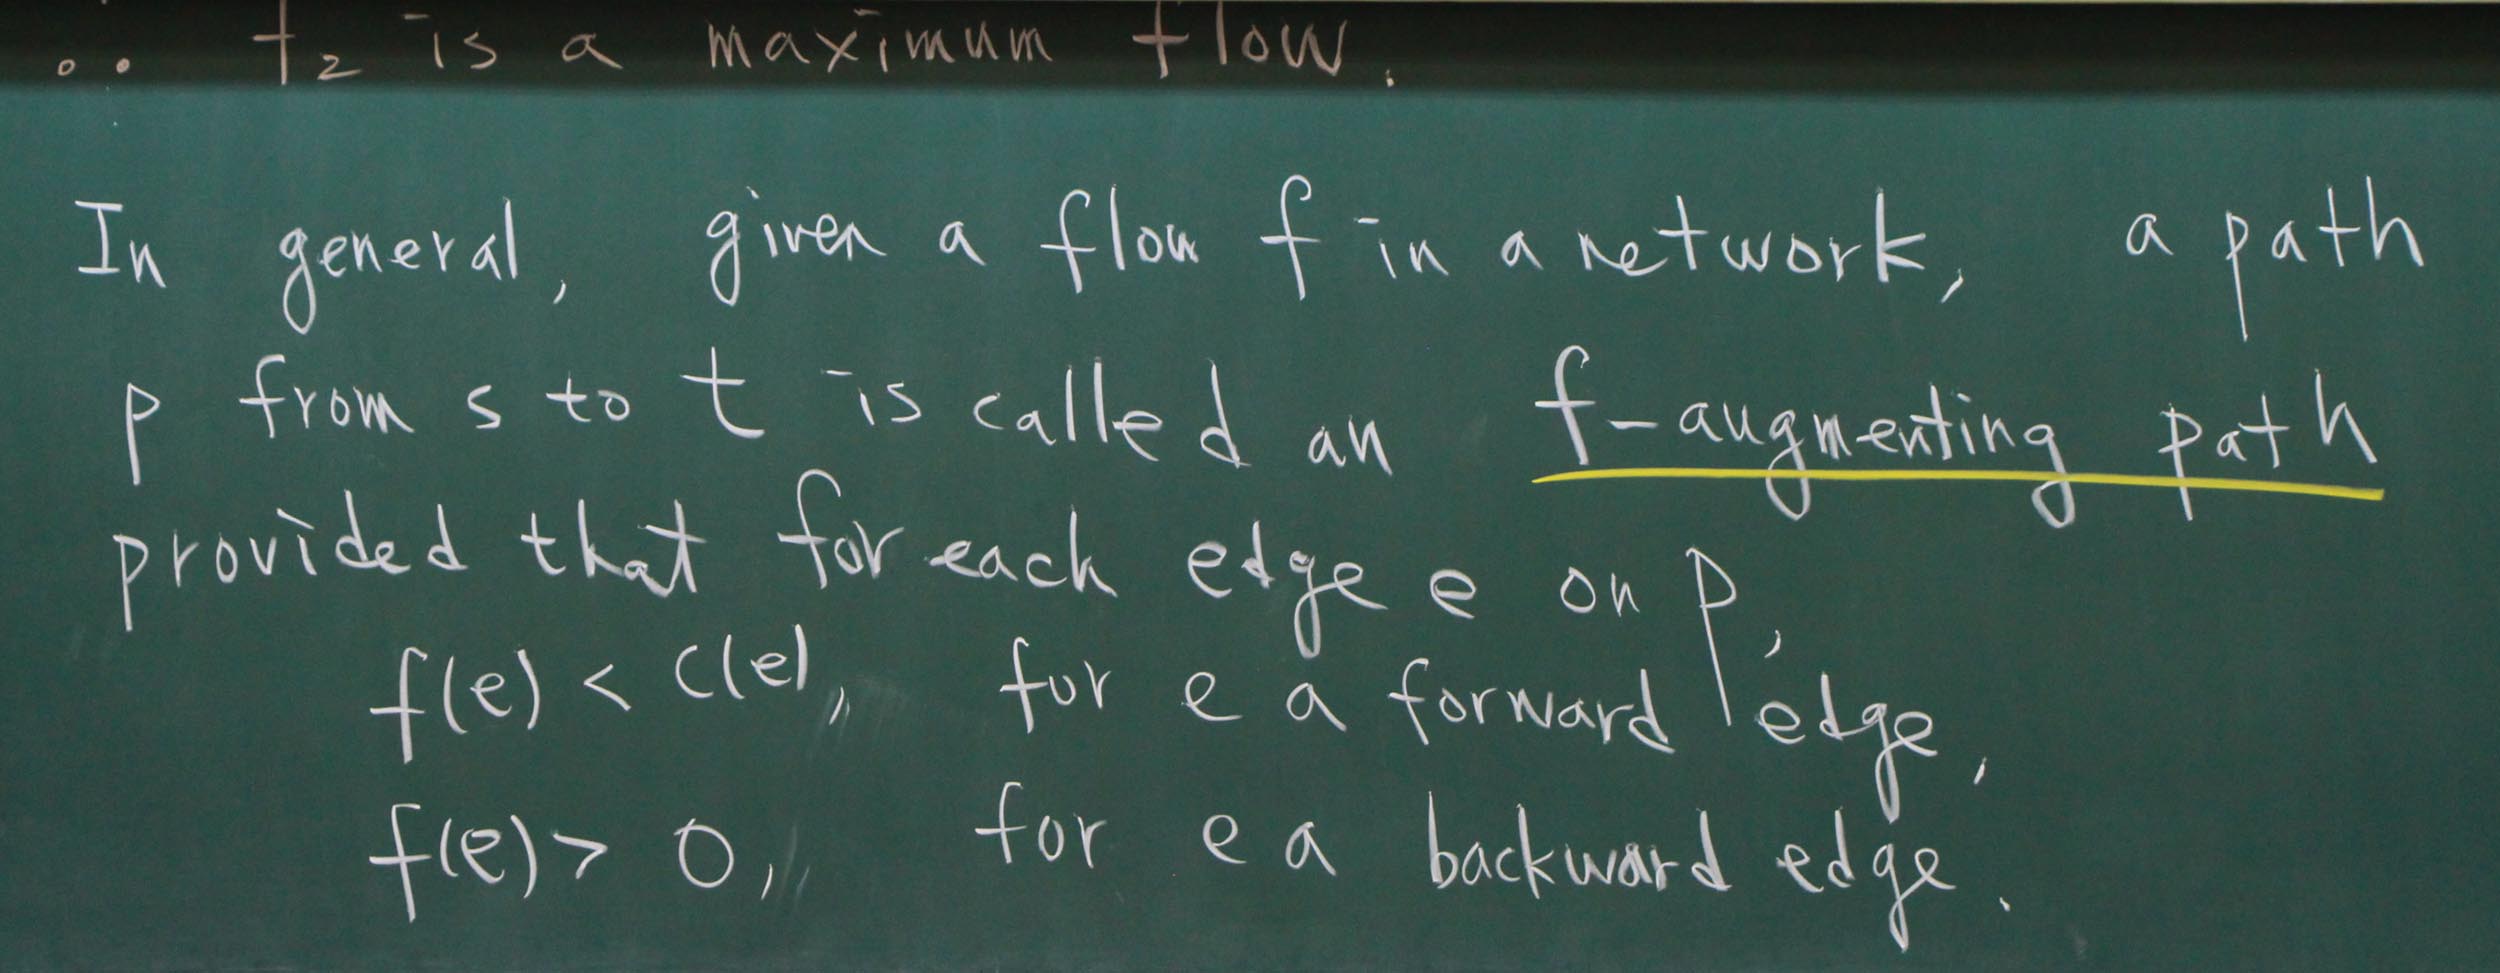 ∴ f₂ is a maximum flow.
In general, given a flow f in a network, a path
p from s to t is called an f-augmenting path
provided that for each edge e on p,
f(e) < c(e), for e a forward edge,
f(e) > 0, for e a backward edge.